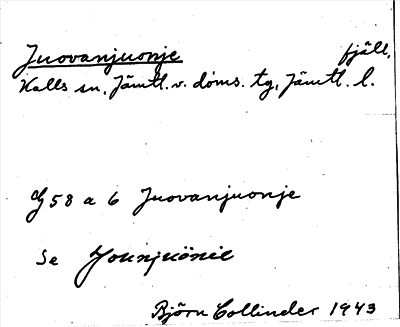 Juovanjuonje fjäll,
Kalls sn, Jämtl. v. doms. tg, Jämtl. l.
58 a 6 Juovanjuonje
Se
Björn Collinder 1943